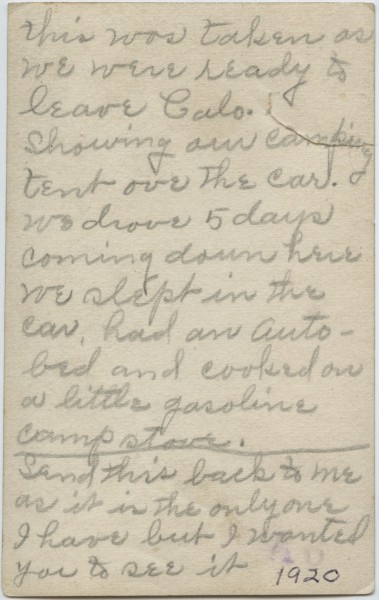 this was taken as
we were ready to
leave Calo.
Showing our camping
tent ove the car.
We drove 5 days
coming down here
we slept in the
car, had an auto-
bed and cooked on
a little gasoline
camp stove.
Send this back to me
as it is the only one
I have but I wanted
you to see it
1920